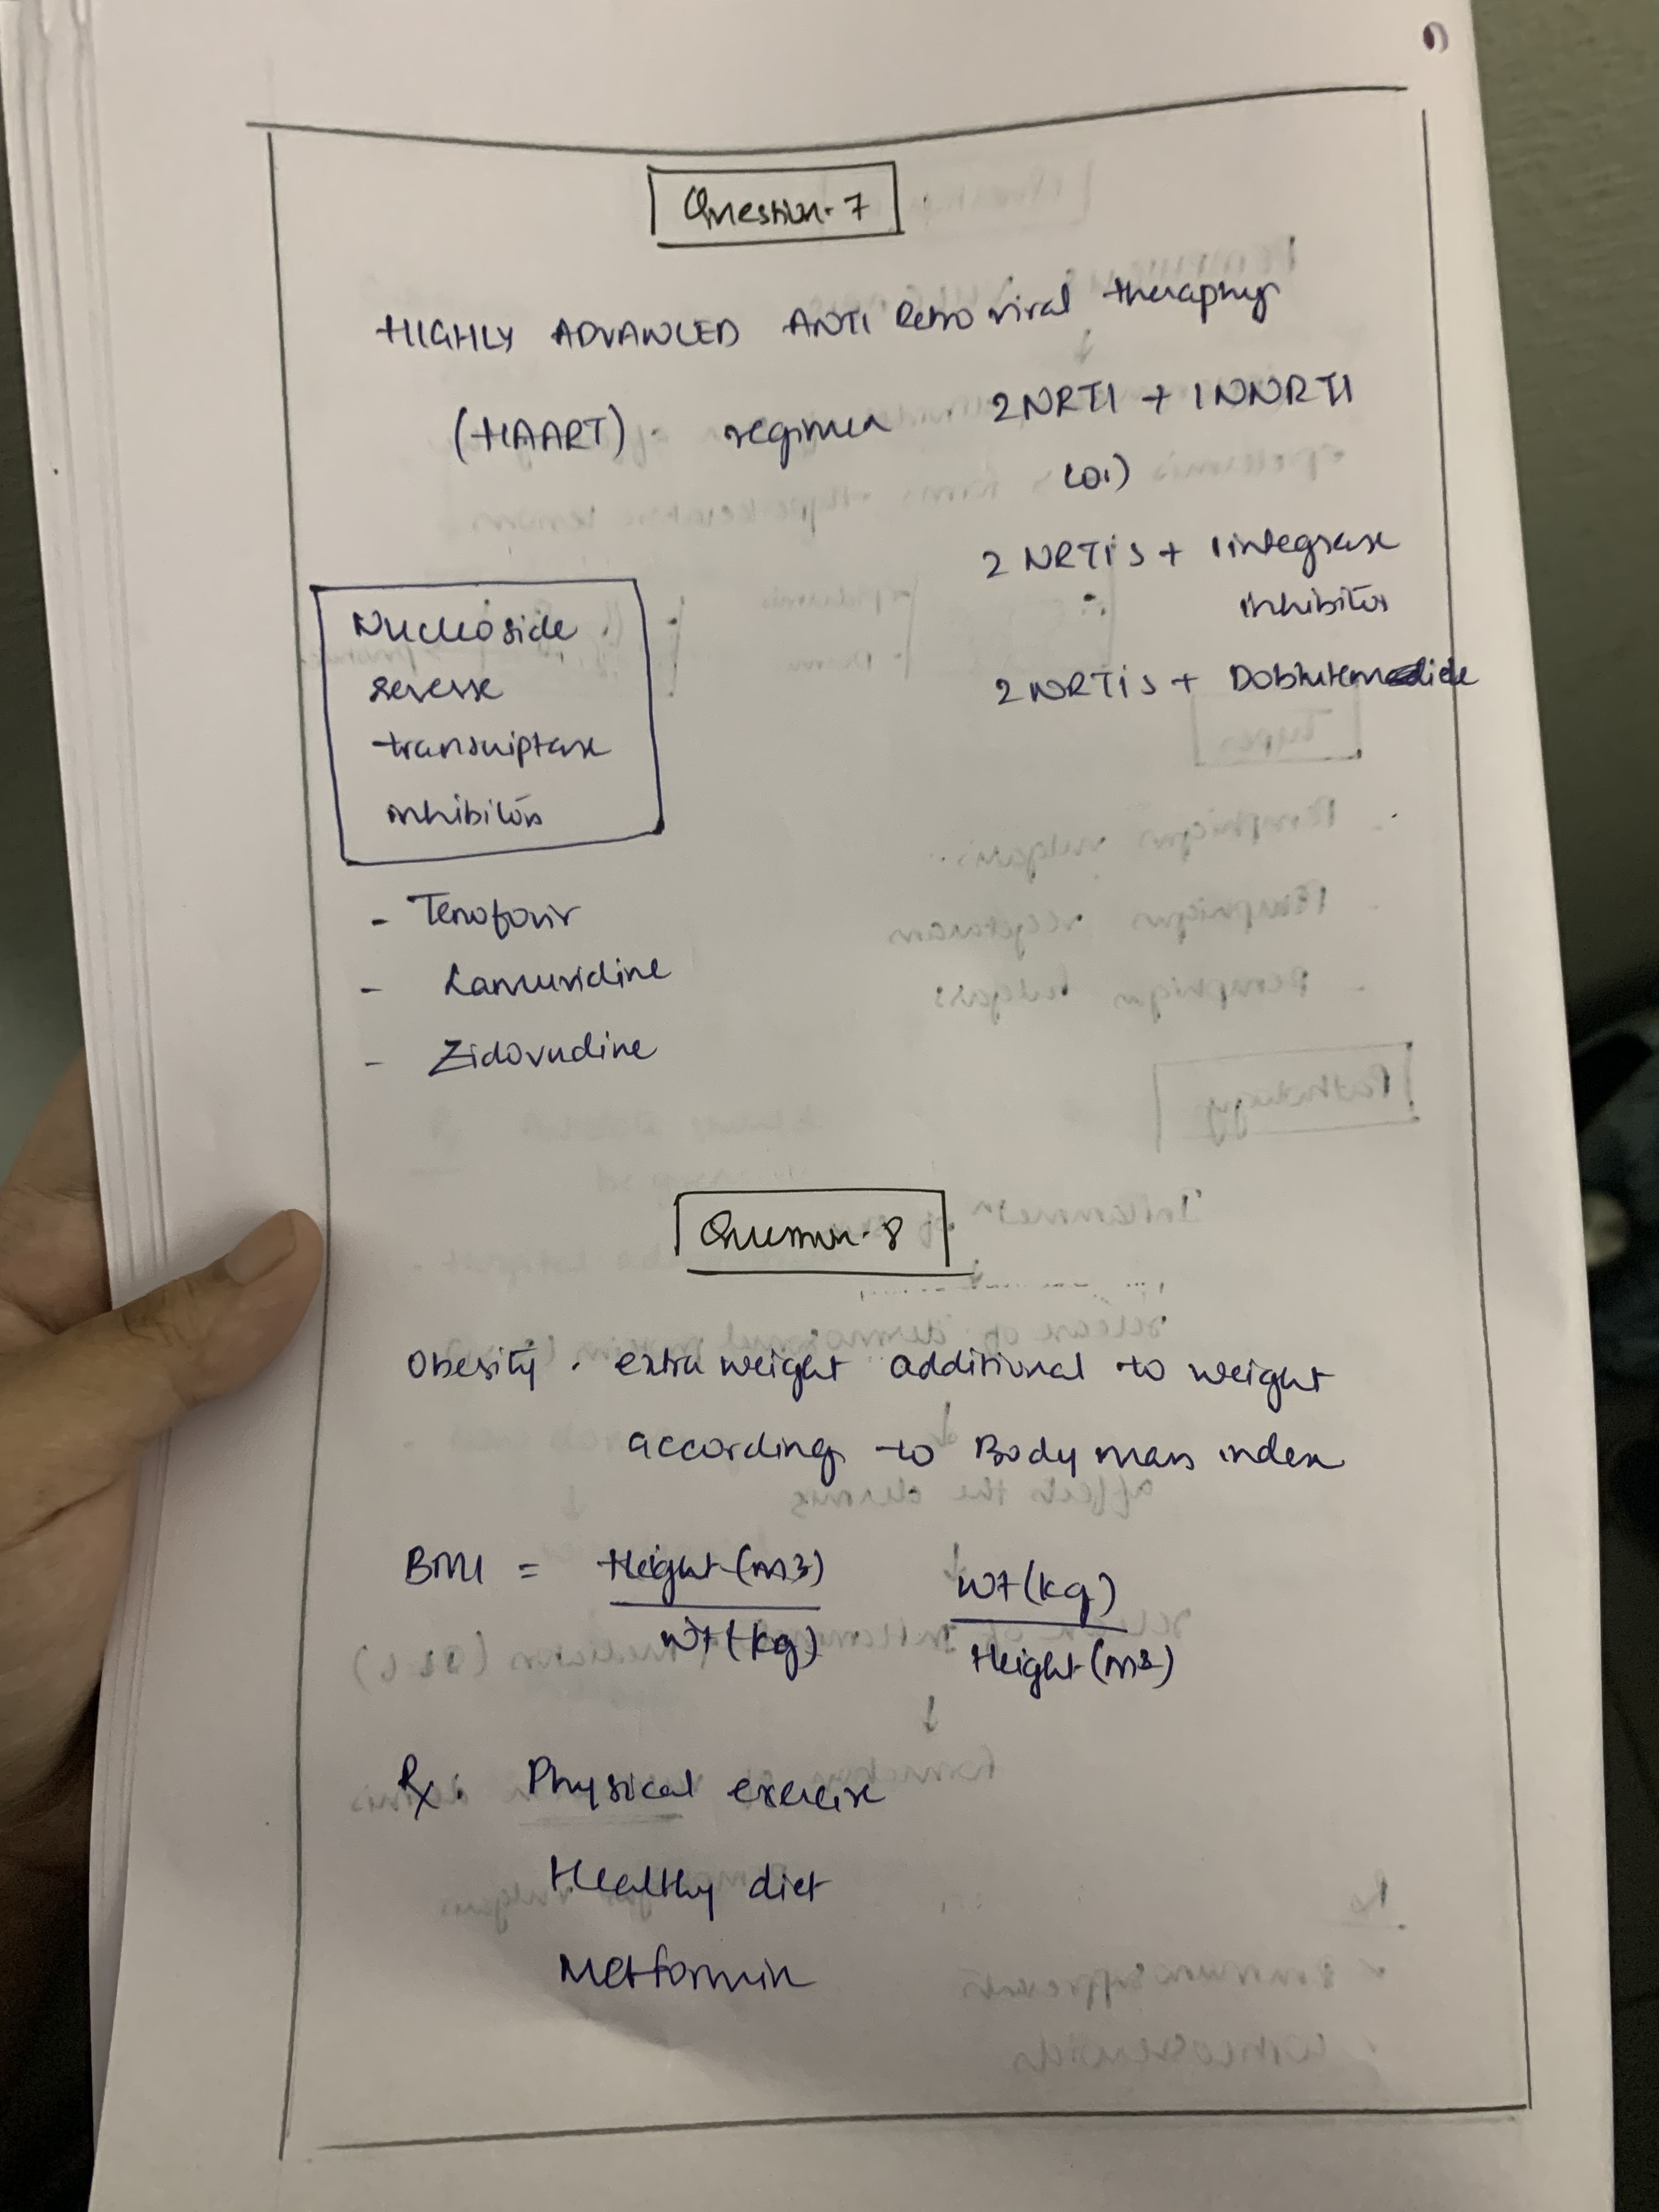 Question-7
HIGHLY ADVANCED ANTI Retro viral theraphy
(HAART). regimen 2NRTI + 1NNRTI
(or)
2 NRTIs + 1integrase
inhibitor
2NRTIs +
Nucleoside
reverse
transcriptase
inhibitors
- Tenofovir
- Lamuvidine
- Zidovudine
Question-8
Obesity. extra weight additional to weight
according to Body mass index
BMI = Height(m3) / wt(kg) wt(kg) / Height(m2)
Rx. Physical exercise
Healthy diet
Metformin